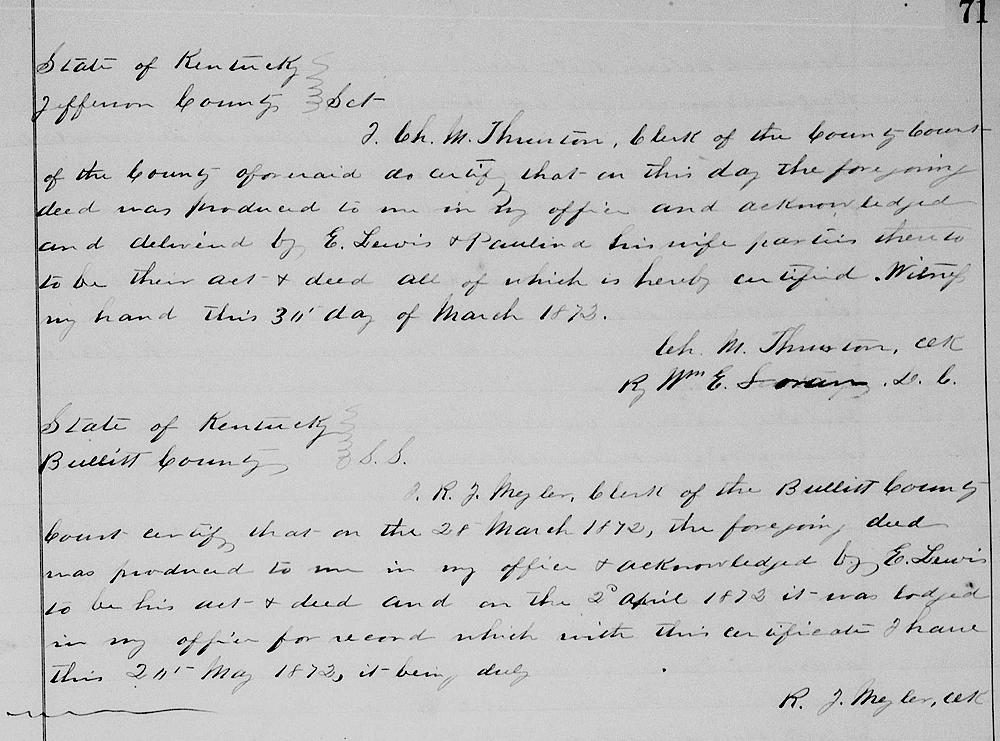 71
State of Kentucky
Jefferson County } Sct
I. Ch. M. Thruston, Clerk of the County Court
of the County aforesaid do certify that on this day the foregoing
deed was produced to me in my office and acknowledged
and delivered by E. Lewis & Paulina his wife parties thereto
to be their act & deed all of which is hereby certified. Witness
my hand this day of March 1872.
Ch. M. Thruston, Clk
By Wm E. D. C.
State of Kentucky
Bullitt County } S. S.
I. R. J. Meyler, Clerk of the Bullitt County
Court certify that on the 28 March 1872, the foregoing deed
was produced to me in my office & acknowledged by E. Lewis
to be his act & deed and on the 2d April 1872 it was lodged
in my office for record which with this certificate I have
this May 1872, it being duly
R. J. Meyler, Clk